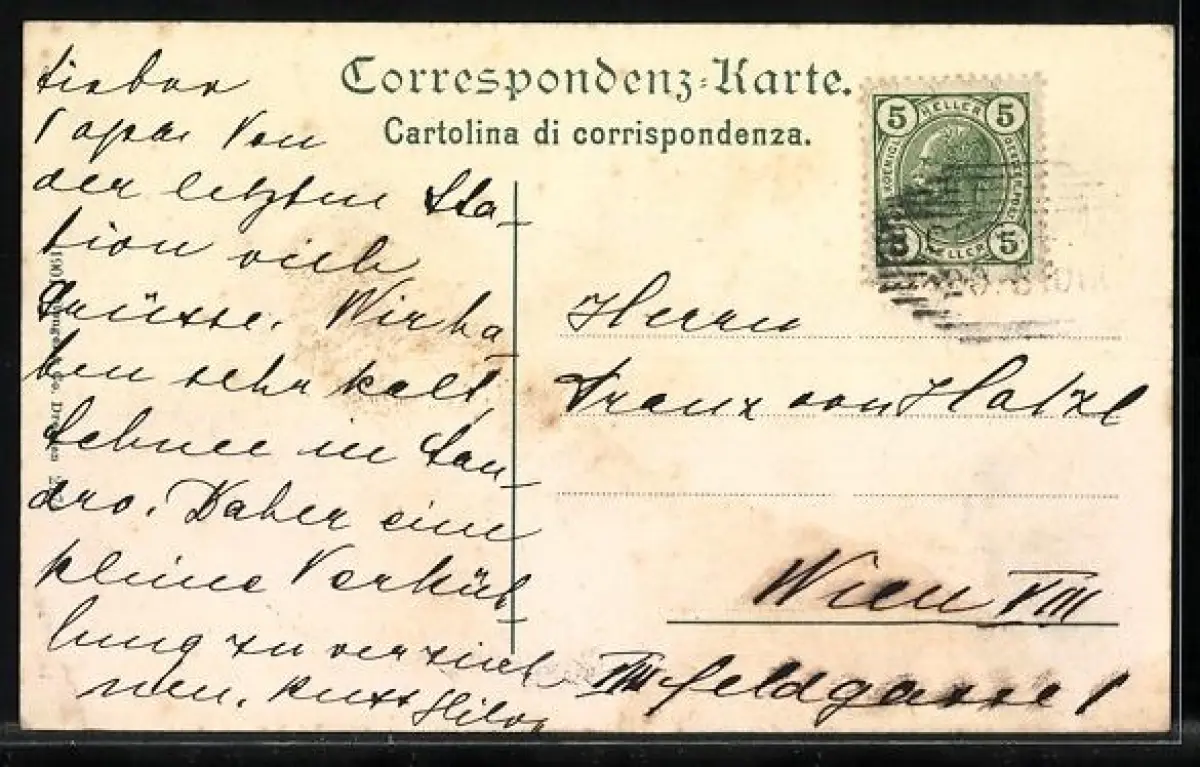 Correspondenz-Karte.
Cartolina di corrispondenza.
5 HELLER 5
5 HELLER 5
Lieber
Papa Von
der letzten Sta-
tion viele
Grüsse. Wir ha-
ben sehr kalt,
Schnee in
Daher eine
kleine Verküh-
lung zu verzeich
nen. Kuss
Herrn
Franz von
Wien VIII
VIII Feldgasse 1